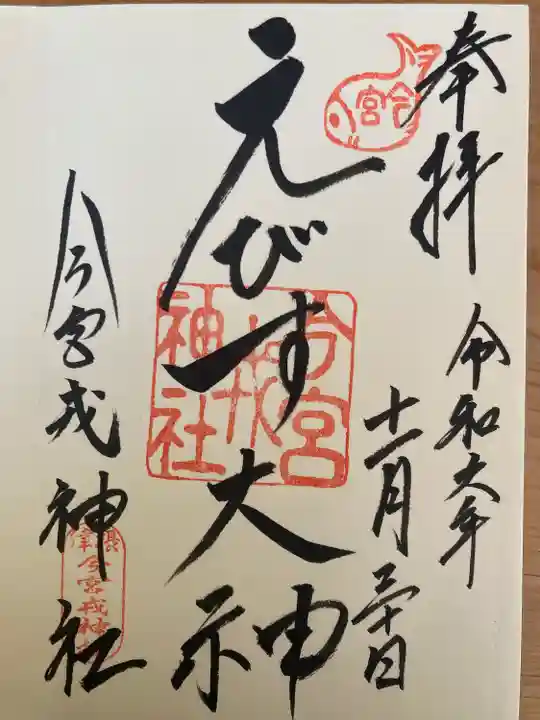 奉拝
今宮
令和六年
十一月三十日
えびす大神
今宮戎神社
今宮戎神社
攝津
今宮戎神社